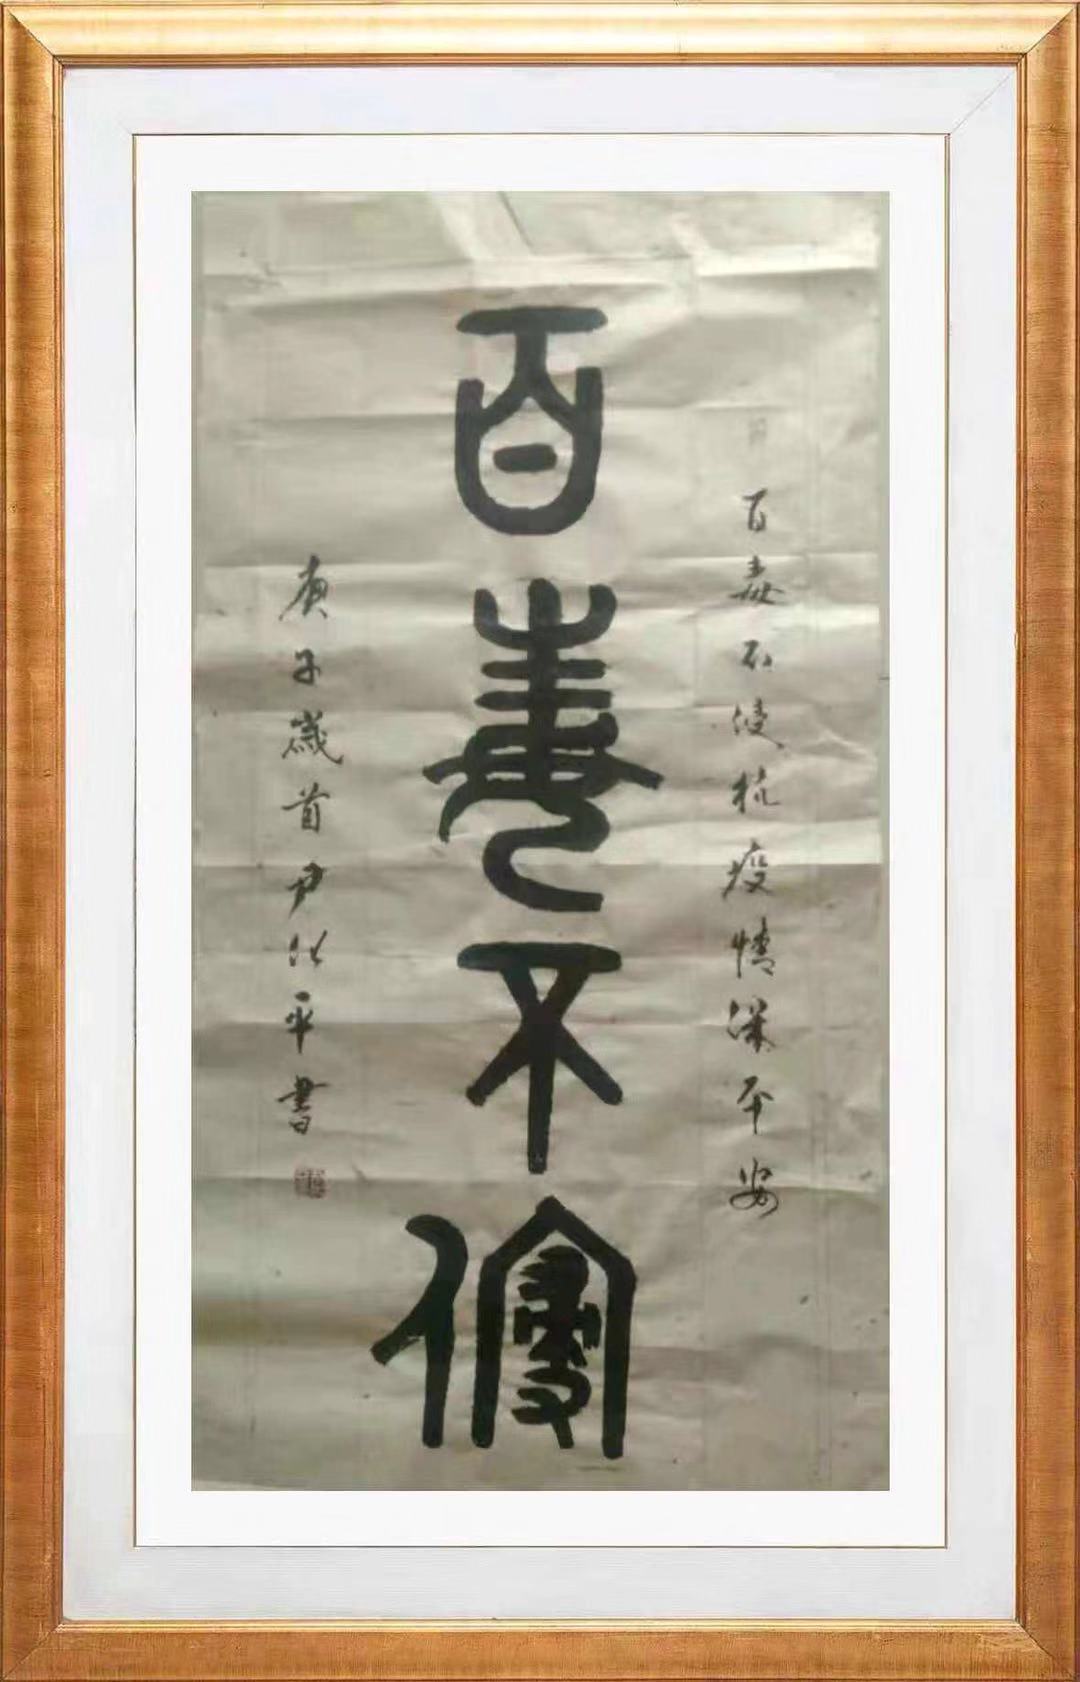 百毒不侵抗疫情深平安
百毒不侵
庚子歲首尹平書